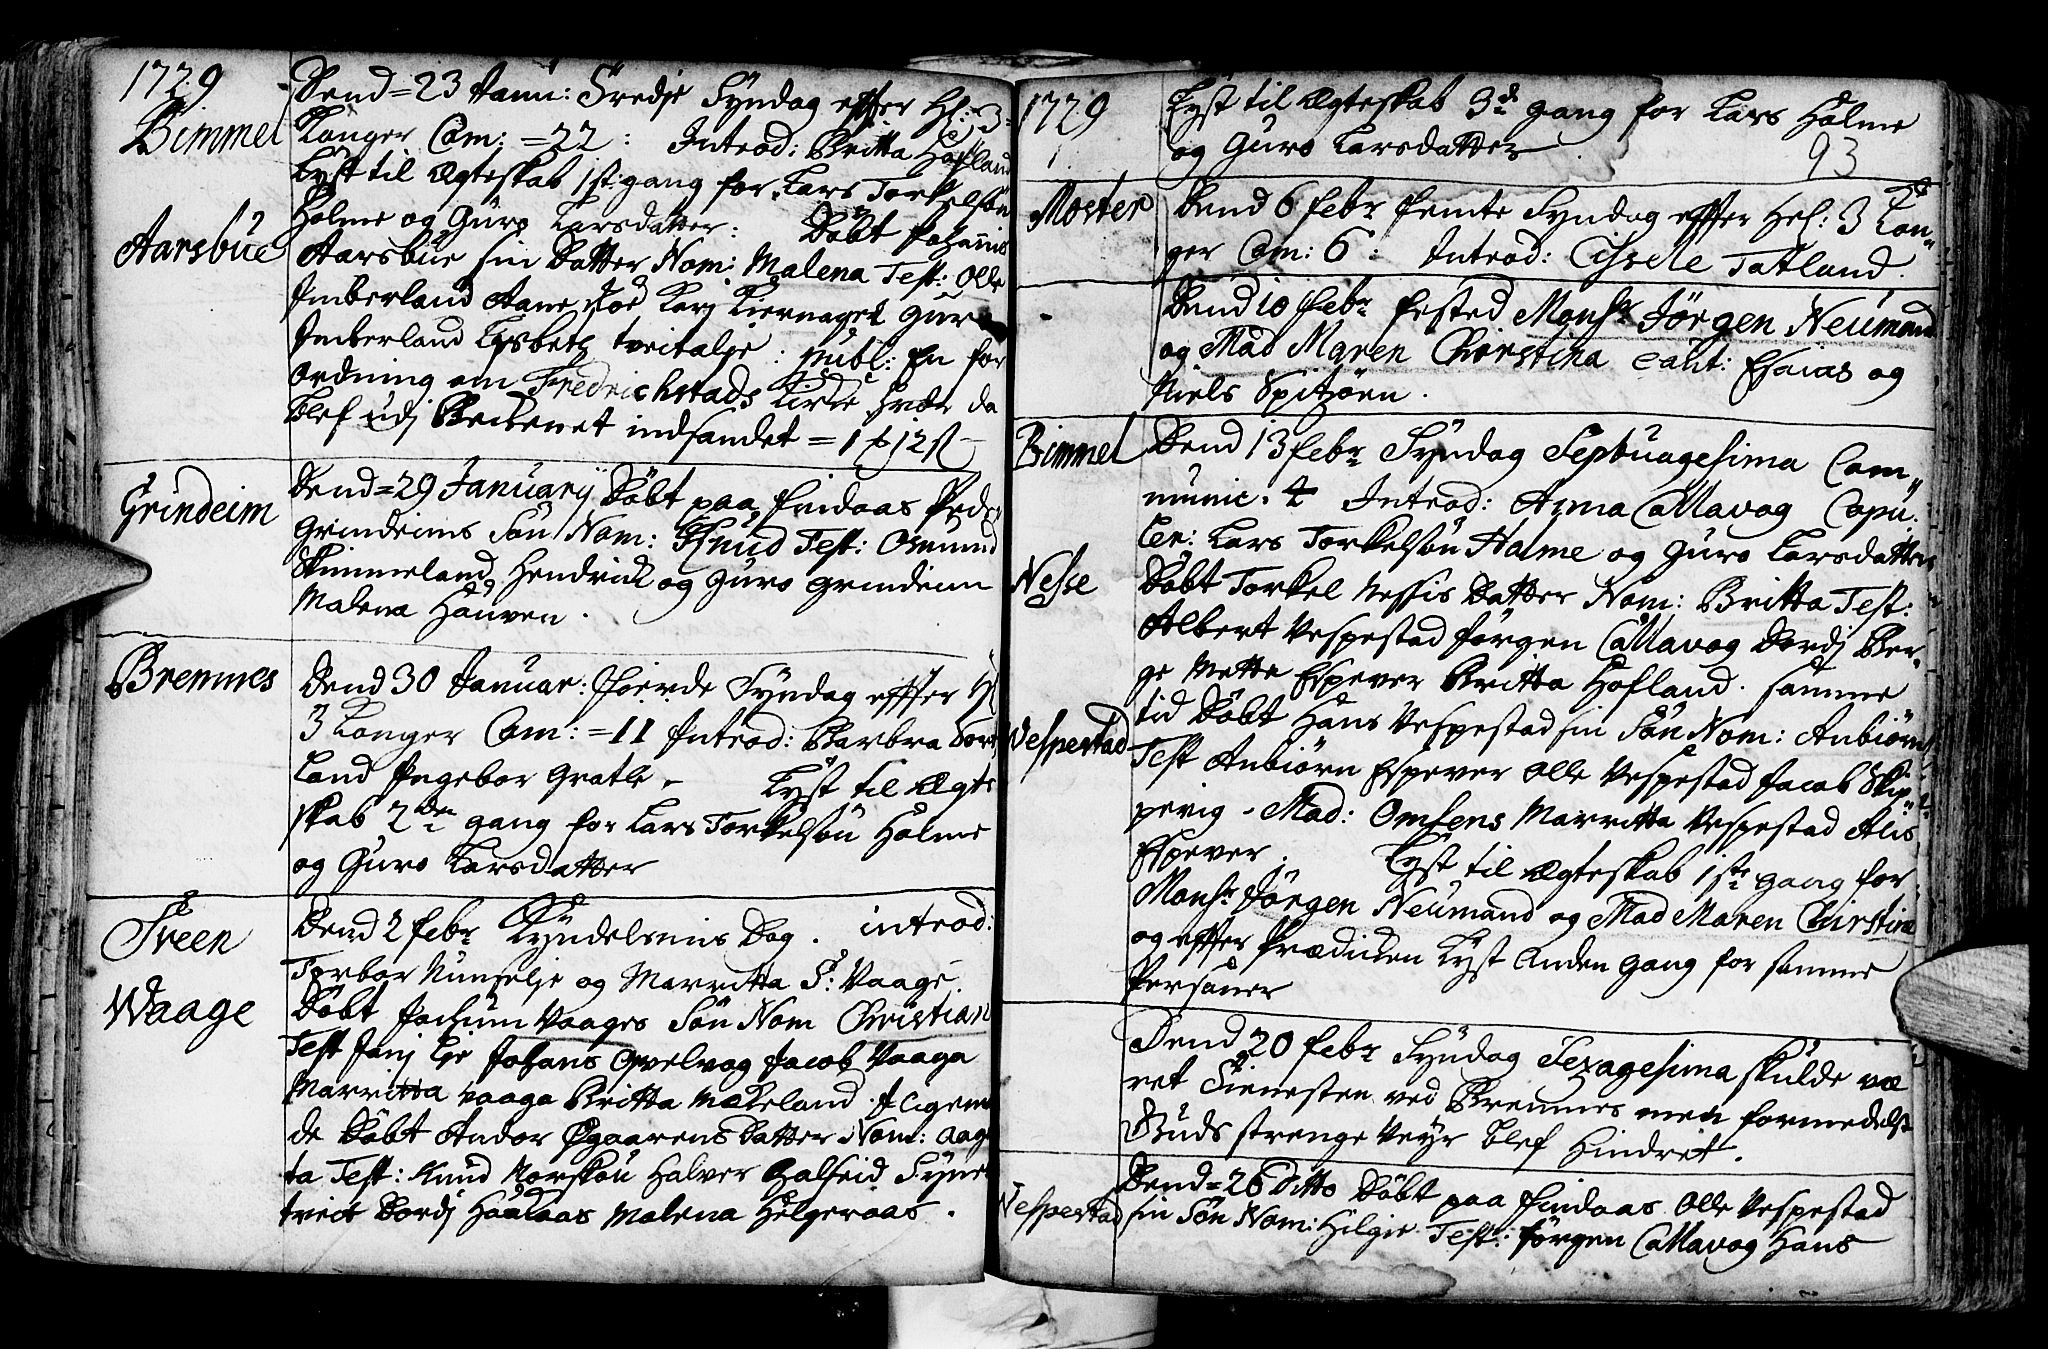 1729
Bimmel
Dend = 23 Janu: Tredje Syndag effter Hl: 3=
Konger Com: = 22: Introd: Britta Hofland
Lyst til Ægteskab 1st: gang for Lars Torkelsøn
Holme og Guro Larsdatter: Døbt Johannis
Aarsbue
Aarsbue sin Datter Nom: Malena Test: Olle
Imberland Aane Kari Kiernaget Guro
Imberland Lisbeth tveitalje: publ: En for
ordning om Fredrichstads Kirke hvor da
blef udj Beckenet indsandet = 1 12
Grindeim
Dend = 29 Januarij Døbt paa Findaas Peder
Grindeims Søn Nom: Knud Test: Osmund
Skimmeland Hendrick og Guro Grindeim
Malena Hauven.
Bremnes
Dend 30 Januar: Fierde Syndag effter Hl
3 Konger Com: = 11 Introd: Barbra
land Ingebor Gratle. Lyst til Ægte
skab 2den gang for Lars Torkelsøn Holme
og Guro Larsdatter
Treen
Waage
Dend 2 febr Kyndelsmis Dag. introd:
Torbor Nunselje og Marritta S: Vaage.
Døbt Jochum Vaages Søn Nom Christian
Test Johans Qvelvog Jacob Vaaga
Marritta vaaga Britta Mækeland. Ligeme
de Døbt Andor Øgaarens Datter Nom: Aage
ta Test: Knud Norskou Halver Halseid Synes
tveit Dordj Haadaas Malena Helgeraas.
1729
93
Lyst til Ægteskab 3de gang for Lars Holme
og Guro Larsdatter
Moster
Dend 6 febr femte Syndag effter Hel: 3 Kon„
ger Com: 6: Introd: Cissele Totland.
Dend 10 febr fested Monsr Jørgen Neumand
og Mad Maren Chirstina caut: Esaias og
Niels Spitzøen.
Bimmel
Dend 13 febr Syndag Septuagesima Com„
munic. 4 Introd: Anna Callavog Copu.
ler: Lars Torkelsøn Holme og Guro Larsdatter
Nesse
Døbt Torkel Nessis Datter Nom: Britta Test:
Albert Vespestad Jørgen Callavog Dordj Ber„
ge Netta Espever Britta Hofland. samme
Vespestad
tid Døbt Hans Vespestad sin Søn Nom: Anbiørn
Test Anbiørn Espever Olle Vespestad Jacob Skip„
pevig. Mad: Omsens Marritta Vespestad Alis
Espever. Lyst til Ægteskab 1ste gang for
Monsr Jørgen Neumand og Mad Maren Chirstina
og effter Prædicken Lyst Anden gang for samme
Persaner
Dend 20 febr Syndag Sexagesima skulde væ
ret Tienesten ved Bremnes men formedelst
Guds strenge Veyr blef Hindret.
Vespestad
Dend = 26 Ditto Døbt paa Findaas Olle Vespestad
sin Søn Nom: Hilgie Test: Jørgen Callavog Hans